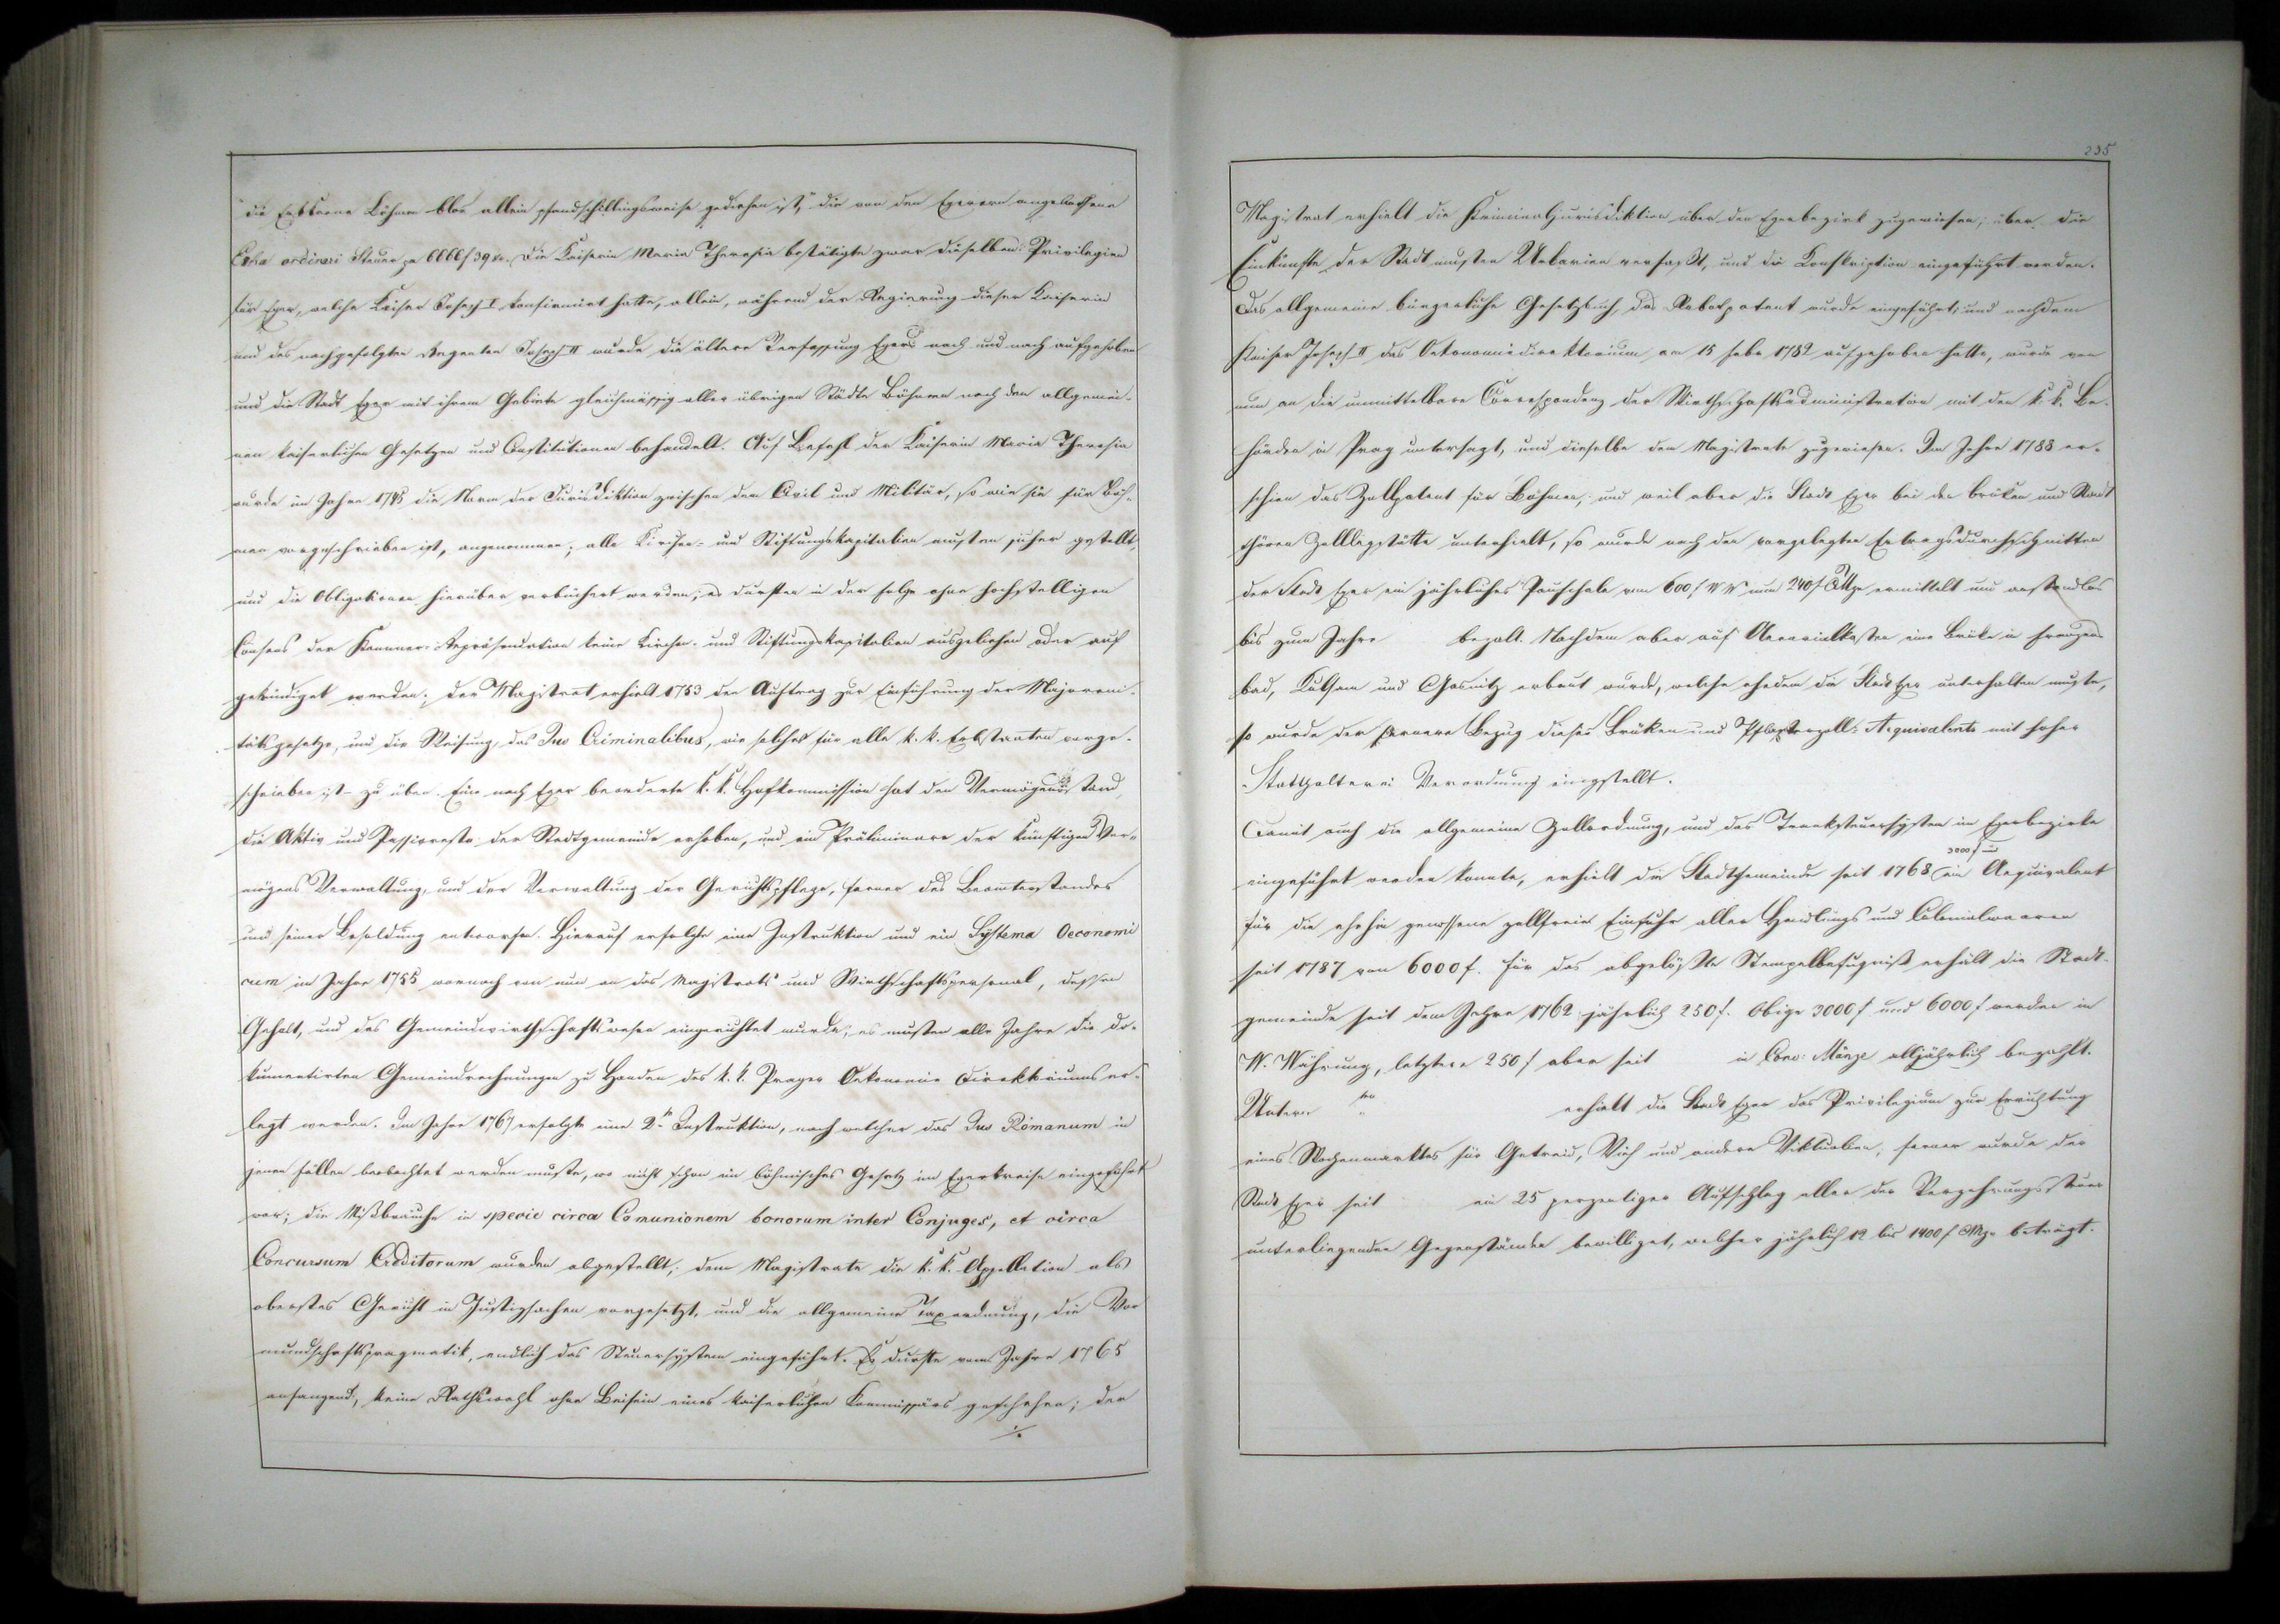 "die Erbkrone Böhmen blos allein pfandschillingsweise gediehen ist," die von den Egerern angesuchene
Extra ordinari Steuer zu 6666 f 39 kr. Die Kaiserin Maria Theresia bestätigte zwar dieselben Privilegien
für Eger, welche Kaiser Joseph I konfirmirt hatte, allein, während der Regierung dieser Kaiserin
und des nachgefolgten Regenten Joseph II wurde die ältere Verfassung Egers nach und nach aufgehoben
und die Stadt Eger mit ihrem Gebiete gleichmässig aller übrigen Städte Böhmens nach den allgemei-
nen kaiserlichen Gesetzen und Constitutionen behandelt. Auf Befehl der Kaiserin Maria Theresia
wurde im Jahre 1748 die Norm der Jurisdiktion zwischen dem Civil und Militär, so wie sie für Böh-
men vorgeschrieben ist, angenommen; alle Kirchen- und Stiftungskapitalien mußten sicher gestellt,
und die Obligationen hierüber verbüchert werden; es durften in der Folge ohne hochstelligen
Consens der Kammer-Repräsentation keine Kirchen- und Stiftungskapitalien ausgeliehen oder auf
gekündiget werden; der Magistrat erhielt 1753 den Auftrag zur Einführung der Majoreni-
tätsgesetze, und die Weisung, das Jus Criminalibus, wie solches für alle k. k. Erbstaaten vorge-
schrieben ist - zu üben. Eine nach Eger beorderte k. k. Hofkommission hat den Vermögensstand,
die Aktiv und Passivreste der Stadtgemeinde erhoben, und ein Präliminare der künftigen Ver-
mögens Verwaltung, und der Verwaltung der Gerichtspflege, ferner des Beamtenstandes
und seiner Besoldung entworfen. Hierauf erfolgte eine Instruktion und ein Systema Oeconomi
cum im Jahre 1755 wornach von nun an das Magistrats und Wirthschaftspersonal, dessen
Gehalt, und das Gemeindwirthschaftswesen eingerichtet wurde; es mußten alle Jahre die do-
kumentirten Gemeindrechnungen zu Handen des k. k. Prager Oekonomie Direktoriums er-
legt werden. Im Jahre 1767 erfolgte eine 2te Instruktion, nach welcher das Jus Romanum in
jenen Fällen beobachtet werden mußte, wo nicht schon ein böhmisches Gesetz im Egerkreise eingeführt
war; die Mißbräuche in specie circa Comunionem bonorum inter Conjuges, et circa
Concursum Creditorum wurden abgestellt; dem Magistrate die k. k. Appellation als
oberstes Gericht in Justizsachen vorgesetzt, und die allgemeine Taxordnung, die Vor
mundschaftspragmatik, endlich das Steuersystem eingeführt. Es durfte vom Jahre 1765
anfangend, keine Rathswahl ohne Beisein eines kaiserlichen Kommissärs geschehen; der
./.
235
Magistrat erhielt die Kriminaljurisdiktion über den Egerbezirk zugewiesen; über die
Einkünfte der Stadt mußten Urbarien verfaßt, und die Konskription eingeführt werden.
Das allgemeine bürgerliche Gesetzbuch, das Robotpatent wurde eingeführt; und nachdem
Kaiser Joseph II das Oekonomiedirektorium am 15 Febr 1782 aufgehoben hatte, wurde von
nun an die unmittelbare Correspondenz der Wirthschaftsadministration mit den k. k. Be-
hörden in Prag untersagt, und dieselbe dem Magistrate zugewiesen. Im Jahre 1788 er-
schien das Zollpatent für Böhmen; und weil aber die Stadt Eger bei den Brüken und Stadt
thören Zolllegstätte unterhielt, so wurde nach den vorgelegten Ertragsdurchschnitten
der Stadt Eger ein jährliches Pauschale von 600 f WW nun 240 f CMze ermittelt und anstandlos
bis zum Jahre bezalt. Nachdem aber auf Aerarialkosten eine Brüke in Franzens
bad, Kulsam und Gasnitz erbaut wurde, welche ehedem die Stadt Eger unterhalten mußte,
so wurde der fernere Bezug dieses Brüken und Pflasterzoll-Aequivalents mit hoher
Statthalterei Verordnung eingestellt.
Damit auch die allgemeine Zollordnung, und das Tranksteuersystem im Egerbezirke
eingeführt werden konnte, erhielt die Stadtgemeinde seit 1768 3000 f und ein Aequivalent
für die ehehin genossene zollfreie Einfuhr aller Handlungs und Colonialwaaren
seit 1787 von 6000 f. Für das abgelößte Stempelbefugniß erhält die Stadt-
gemeinde seit dem Jahre 1762 jährlich 250 f. Obige 3000 f und 6000 f werden in
W. Währung, letztere 250 f aber seit in Conv: Münze alljährlich bezahlt.
Unterm erhielt die Stadt Eger das Privilegium zur Errichtung
eines Wochenmarktes für Getreid, Vieh und andere Viktualien, ferner wurde der
Stadt Eger seit ein 25 perzentiger Aufschlag aller der Verzehrungssteuer
unterliegenden Gegenstände bewilliget, welcher jährlich 12 bis 1400 f CMze beträgt.